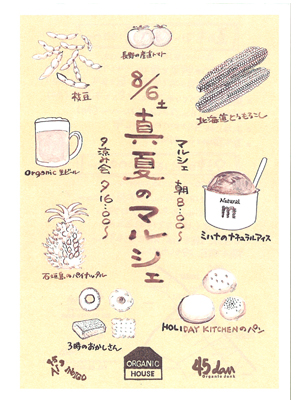 長野の産直トマト
枝豆
北海道とうもろこし
8/6土
真夏のマルシェ
マルシェ 朝8:00〜
夕涼み会 夕16:00〜
Organic生ビール
Natural
m
ミハナのナチュラルアイス
石垣島のパイナップル
HOLIDAY KITCHENのパン
3時のおかしさん
ORGANIC
HOUSE
45dan